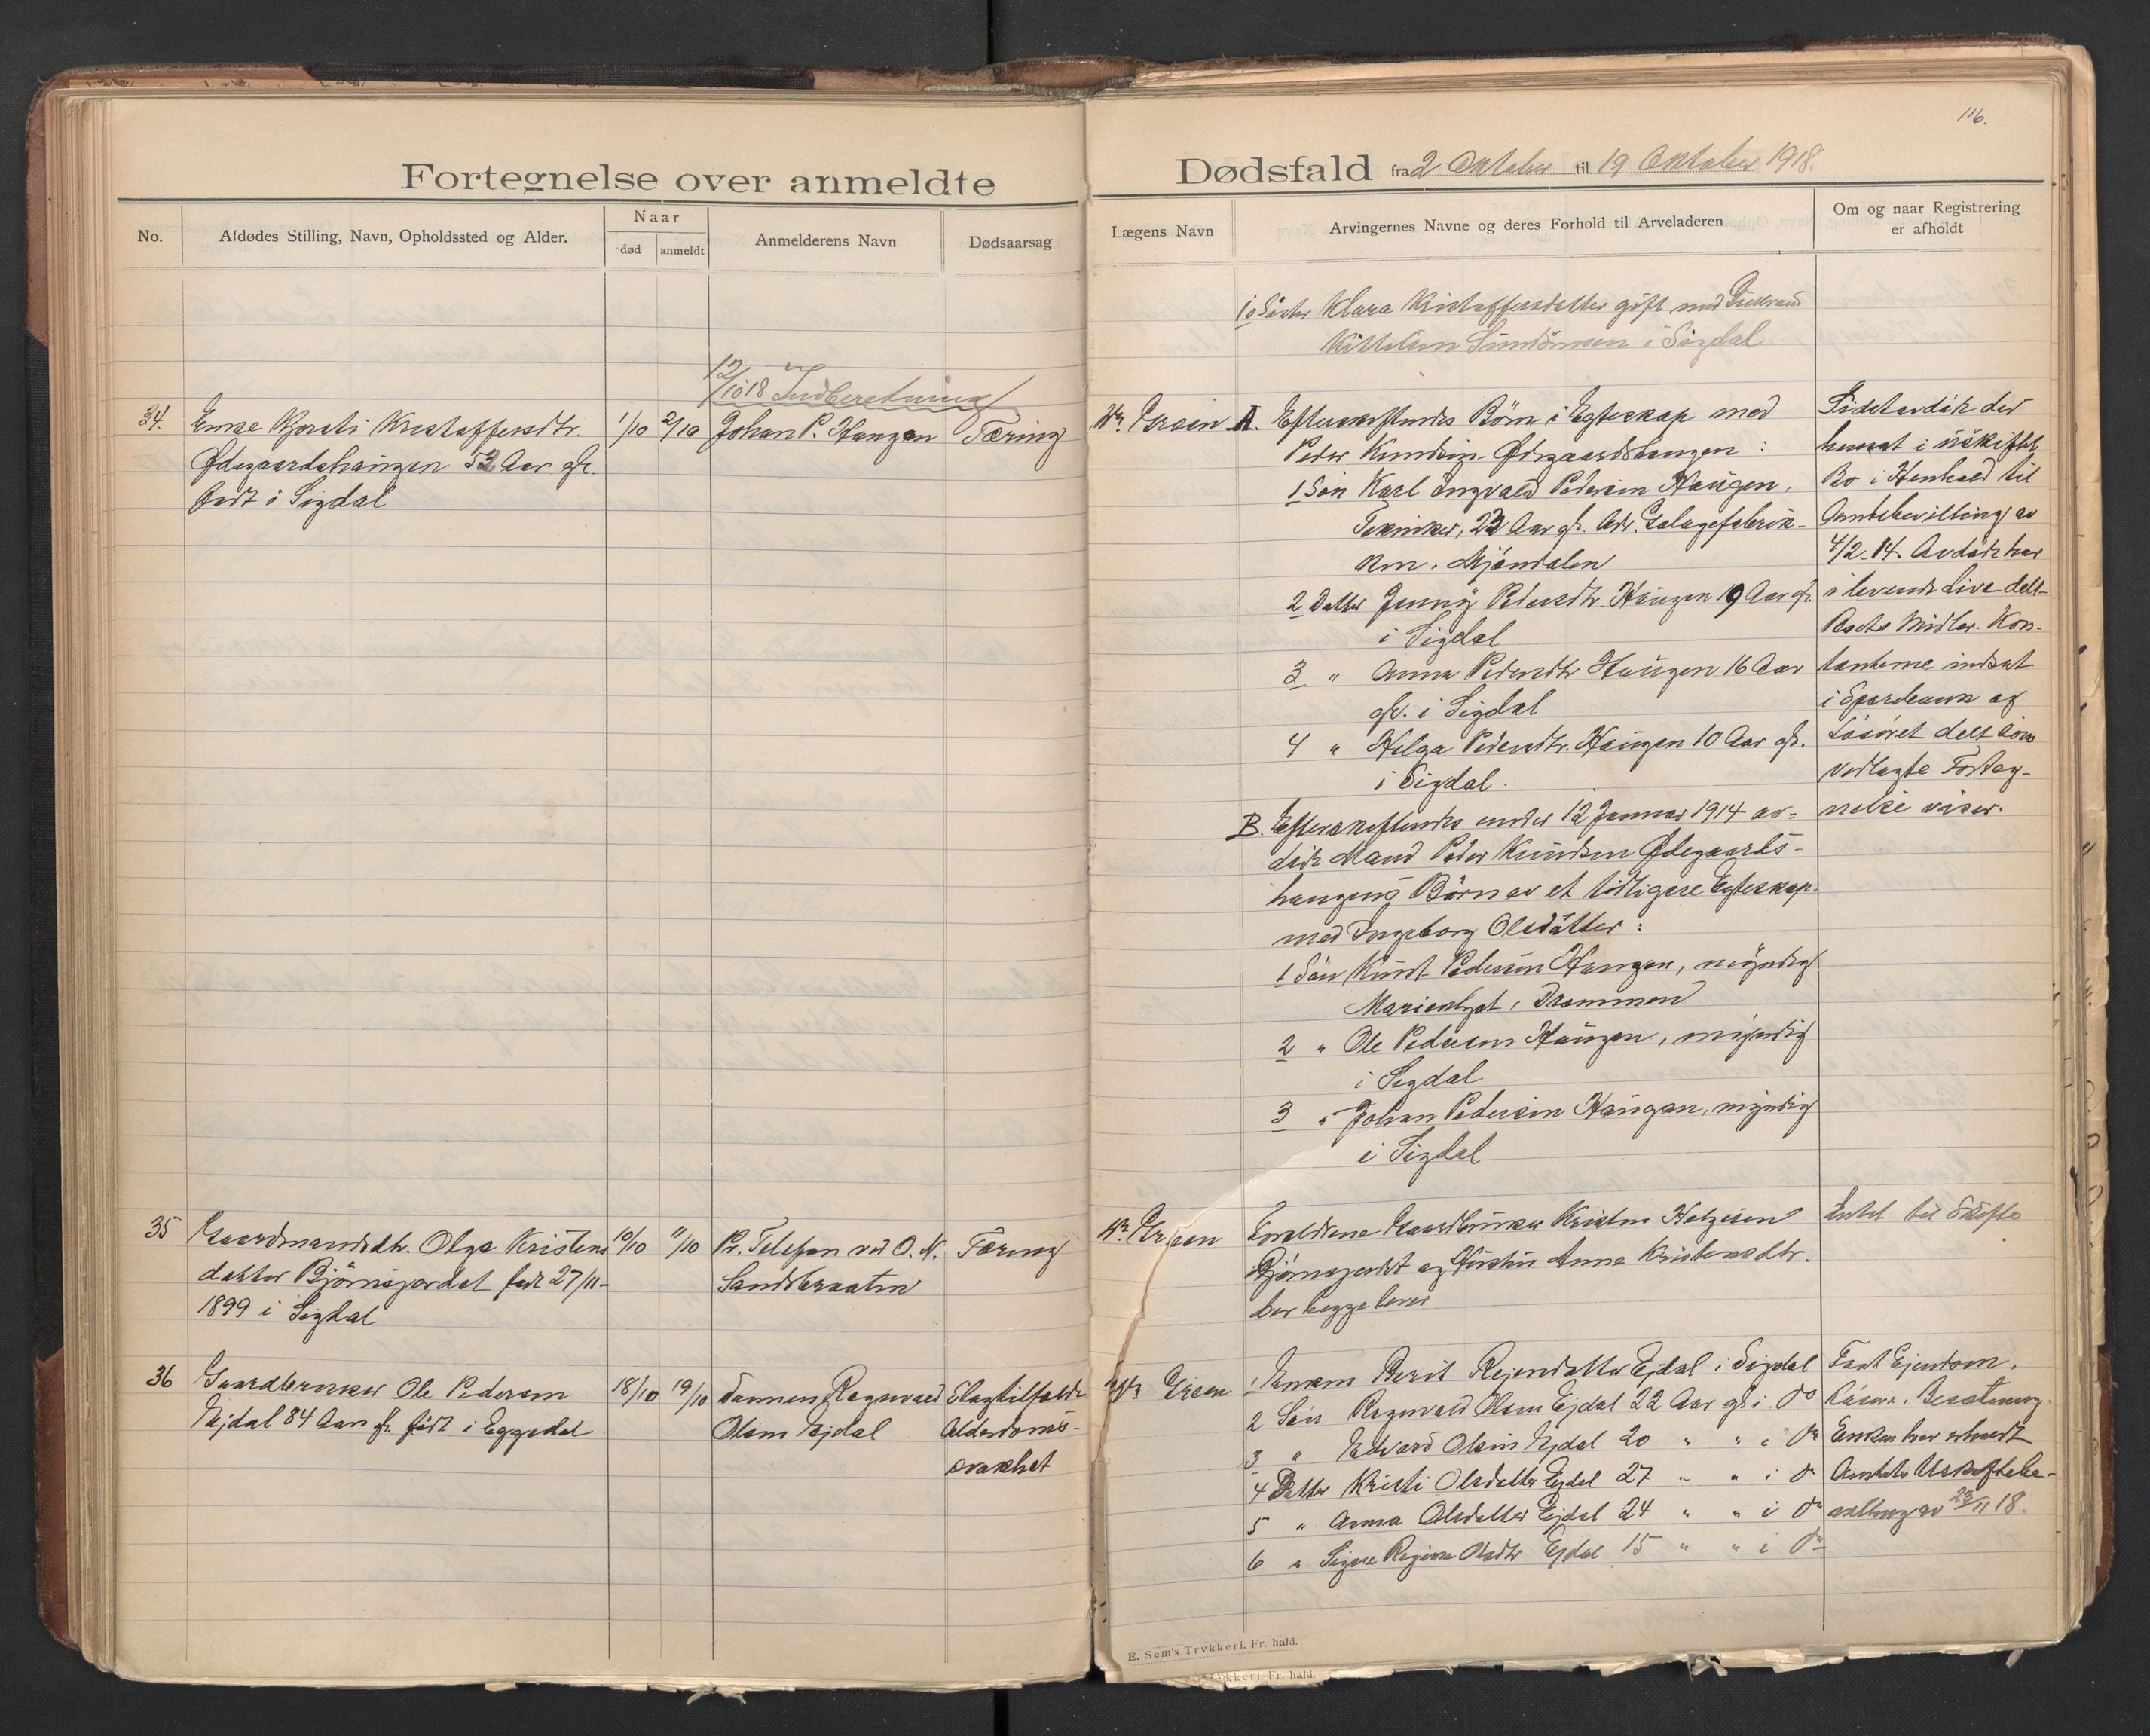 116.
Fortegnelse over anmeldte Dødsfald fra 2 Oktober til 19 Oktober 1918.
No.
Afdødes Stilling, Navn, Opholdssted og Alder.
Naar
død
anmeldt
Anmelderens Navn
Dødsaarsag
Lægens Navn
Arvingernes Navne og deres Forhold til Arveladeren
Om og naar Registrering
er afholdt
10 Søster Klara Kristoffersdatter gift med
i Sigdal
12/10 18 Indberetning
34.
Enke Kjersti Kristoffersdtr.
Ødegaardshaugen 52 Aar gl.
født i Sigdal
1/10
2/10
Johan P. Haugen
Tæring
A. Efterskeftendes Børn i Egteskap med
Peder Knudsen Ødegaardshaugen:
1 Søn Karl Ingvald Pedersen Haugen,
Tekniker, 23 Aar gl. Adr. Galagefabrik-
ken, Mjøndalen
2 Datter Jenny Pedersdtr. Haugen 19 Aar gl.
i Sigdal
3 " Anna Pedersdtr Haugen 16 Aar
gl. i Sigdal
4 " Helga Pedersdtr. Haugen 10 Aar gl.
i Sigdal.
B. Efterskeftendes under 12 Januar 1914 av-
døde Mand Peder Knudsen Ødegaards-
haugens Børn av et tidligere Egteskap
med Ingeborg Olsdatter:
1 Søn Knut Pedersen Haugen, myndig
Marienlyst, Drammen
2 " Ole Pedersen Haugen, myndig
i Sigdal
3 " Johan Pedersen Haugen, myndig
i Sigdal
Sidstavdøde har
hensat i uskiftet
Bo i Henhold til
Amtsbevilling av
4/2-14. Avdøde har
i levende Live delt
Boets Midler. Kon-
tanterne indsat
i Sparebank og
Løsøret delt som
vedlagte Forteg-
nelse viser.
35
Gaardmandsdtr. Olga Kristens
datter Bjørnsjordet født 27/11-
1899 i Sigdal
10/10
11/10
Pr. Telefon ved O. N.
Sandsbraaten
Tæring
Forældrene Gaardbruker Kristen Helgesen
Bjørnsjordet og Hustru Anne Kristensdtr.
der begge lever
Intet til Skifte
36
Gaardbruker Ole Pedersen
Ejdal 84 Aar gl. født i Eggedal
18/10
19/10
Sønnen Ragnvald
Olsen Ejdal
Slagtilfælde
Alderdoms-
svakhet
1 Enken Berit Reiersdatter Ejdal i Sigdal
2 Søn Ragnvald Olsen Ejdal 22 Aar gl i do
3 " Edvard Olsen Ejdal 20 " " i do
4 Datter Kristi Olsdatter Ejdal 27 " " i do
5 " Anna Olsdatter Ejdal 24 " " i do
6 " Signe Regine Olsdtr Ejdal 15 " " i do
Fast Ejendom.
Løsøre. Besætning.
Enken har erholdt
Amtets Uskiftebe-
villing av 23/11 18.
E. Sem's Trykkeri. Fr. hald.
Trykkeri. Fr. hald.